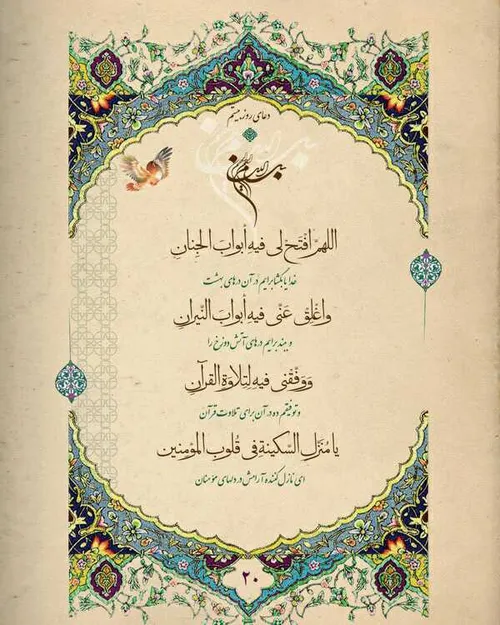 دعای روز بیستم
بسم الله الرحمن الرحیم
اللهمّ افْتَح لی فیهِ أبوابَ الجِنانِ
خدایا بگشا برایم در آن درهای بهشت
واغْلِق عَنّی فیهِ أبوابَ النّیرانِ
و ببند برایم درهای آتش دوزخ را
وَوَفّقْنی فیهِ لِتِلاوَةِ القرآنِ
و توفیقم ده در آن برای تلاوت قرآن
یا مُنَزّلِ السّکینةِ فی قُلوبِ المؤمِنین
ای نازل کننده آرامش در دلهای مؤمنان
۲۰